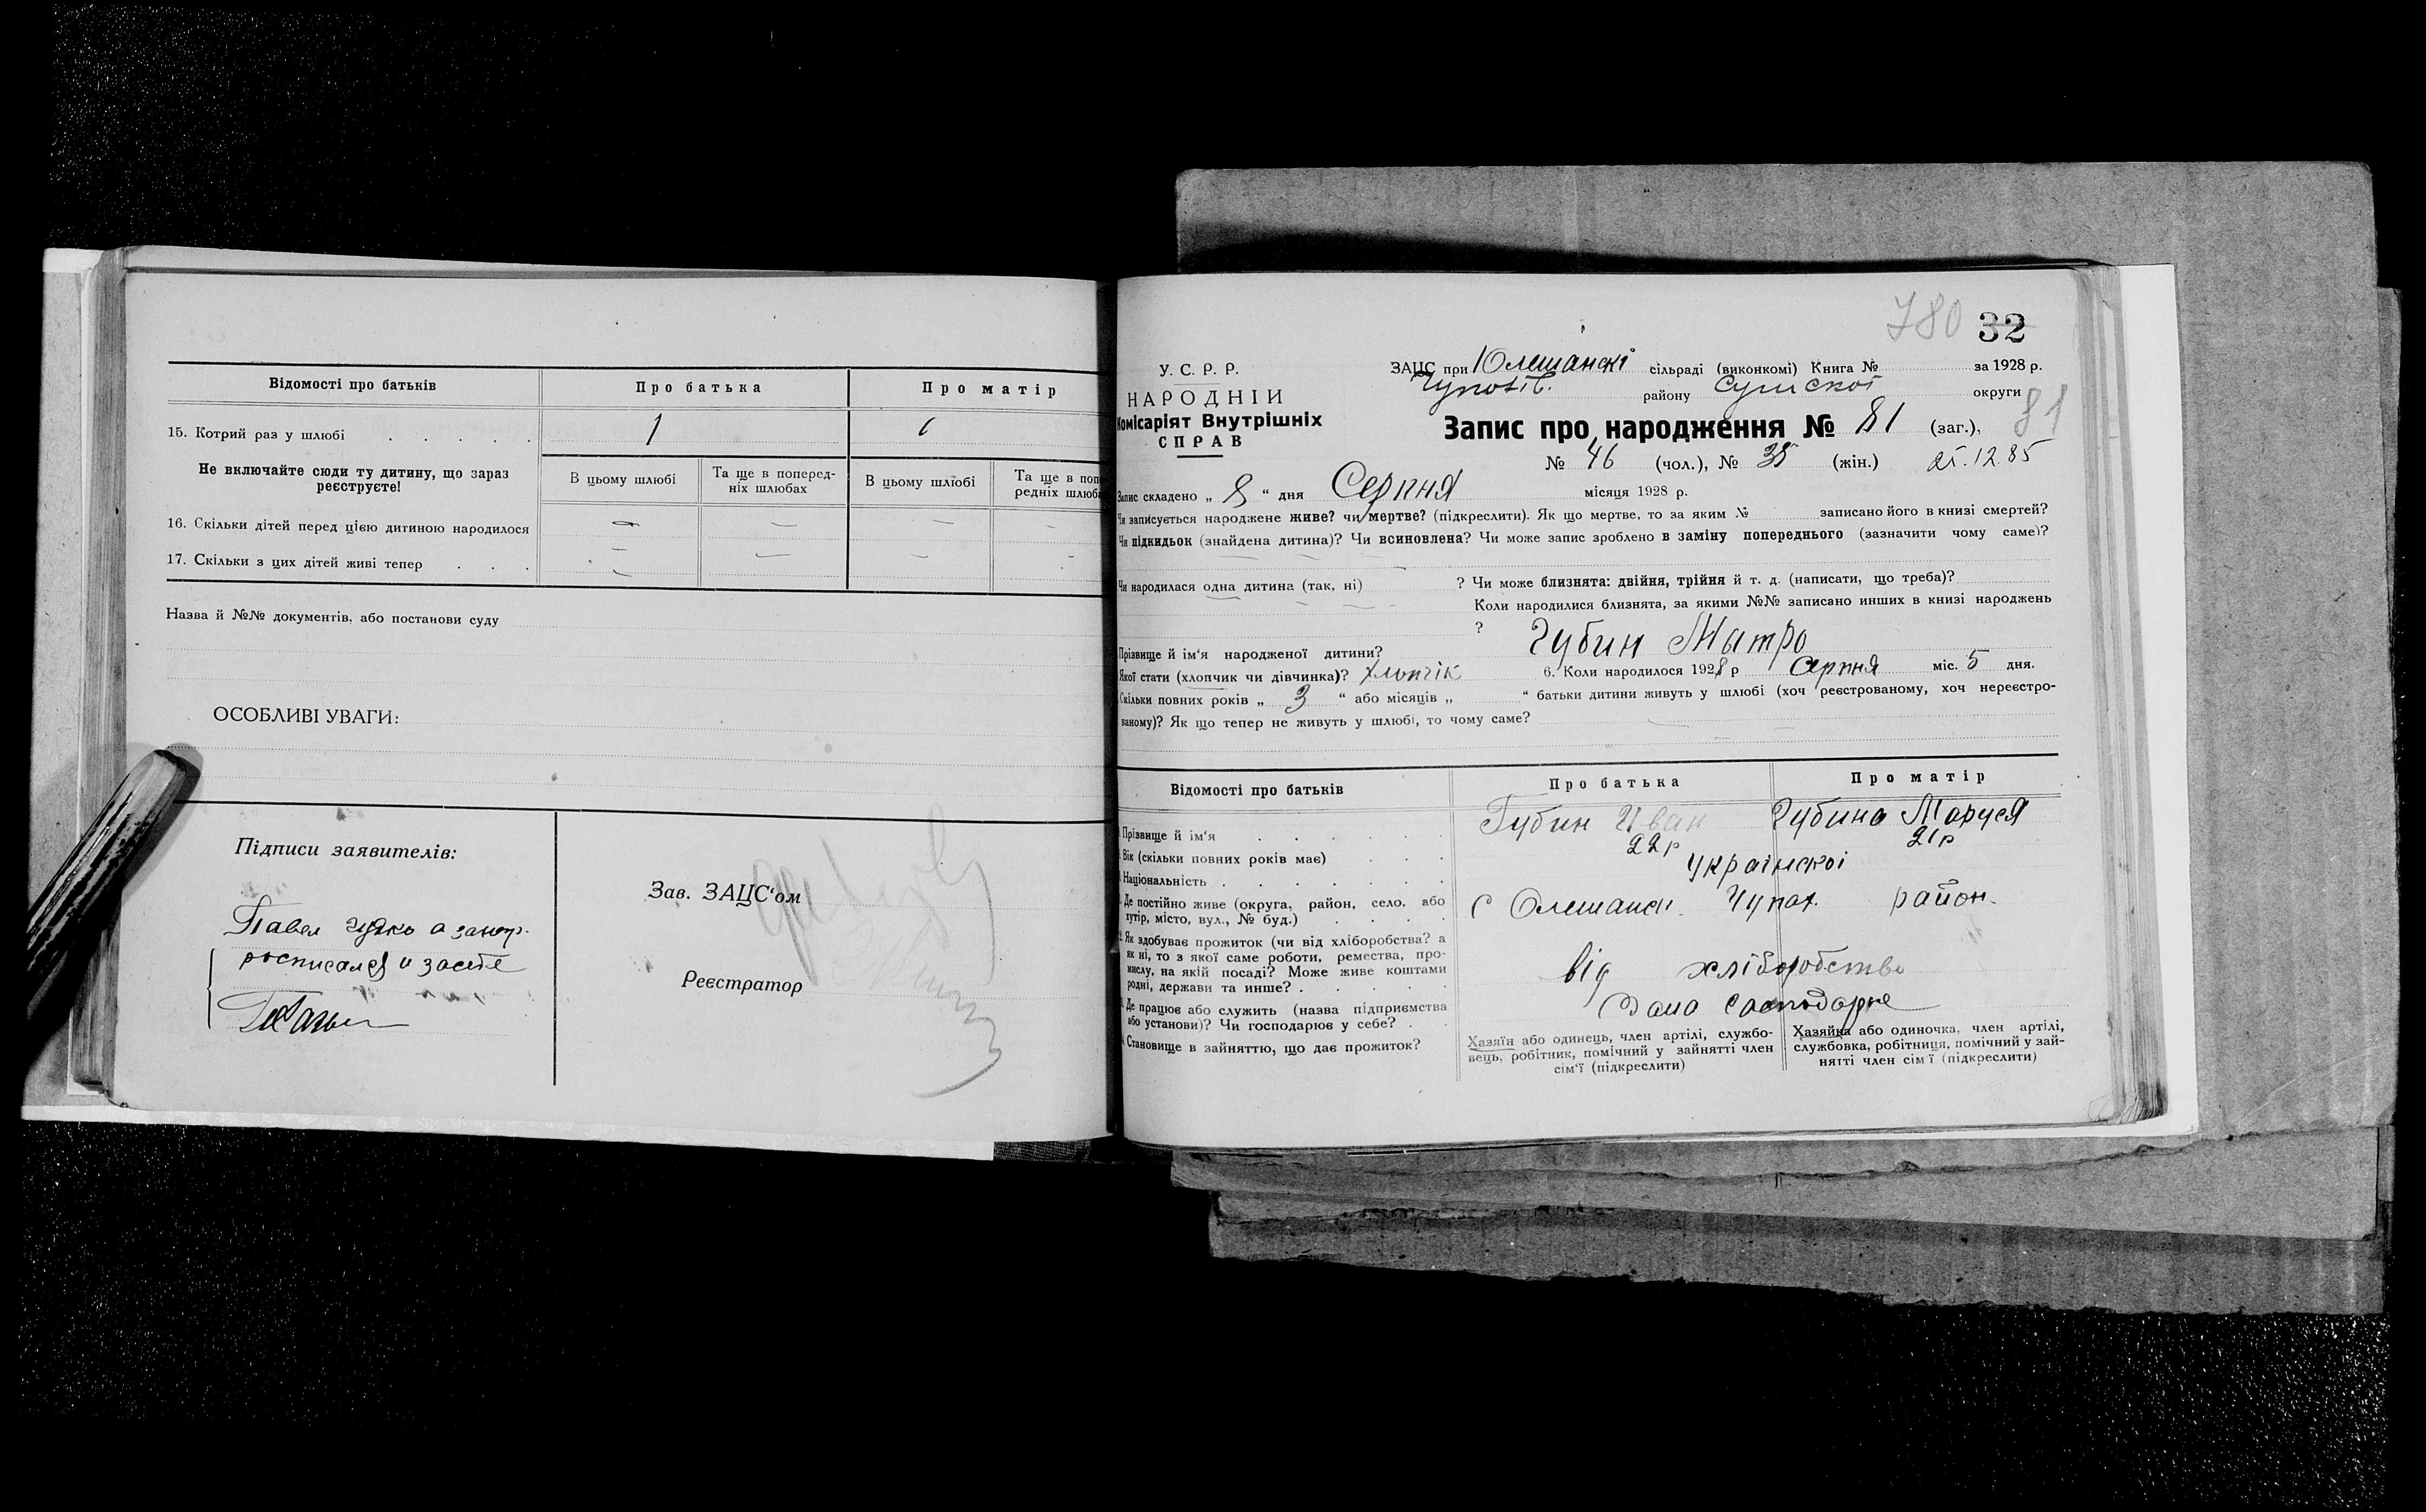 Відомості про батьків
Про батька
Про матір
15. Котрий раз у шлюбі
1
Не включайте сюди ту дитину, що зараз
реєструєте!
В цьому шлюбі
Та ще в поперед-
ніх шлюбах
В цьому шлюбі
Та ще в попе
редніх шлюба
16. Скільки дітей перед цією дитиною народилося
17. Скільки з цих дітей живі тепер
Назва й №№ документів, або постанови суду
ОСОБЛИВІ УВАГИ:
Підписи заявителів:
Павел
росписался и засебе
Зав. ЗАЦС'ом
Реєстратор
780 32
У. С. Р. Р.
НАРОДНІЙ
Комісаріят Внутрішніх
СПРАВ
ЗАЦС при Юлешанскі сільраді (виконкомі) Книга № за 1928 р.
району Сумскої округи
Запис про народження № 81 (заг.), 81
№ 46 (чол.), № 35 (жін.) 25.12.85
Запис складено „ 8 “ дня Серпня місяця 1928 р.
Чи записується народжене живе? чи мертве? (підкреслити). Як що мертве, то за яким № записано його в книзі смертей?
Чи підкидьок (знайдена дитина)? Чи всиновлена? Чи може запис зроблено в заміну попереднього (зазначити чому саме)?
Чи народилася одна дитина (так, ні) ? Чи може близнята: двійня, трійня й т. д. (написати, що треба)?
Коли народилися близнята, за якими №№ записано инших в книзі народжень
?
Прізвище й ім'я народженої дитини? Губин Мытро
Якої стати (хлопчик чи дівчинка)? хлопчік 6. Коли народилося 1928 р Серпня міс. 5 дня.
Скільки повних років „ 3 “ або місяців „ “ батьки дитини живуть у шлюбі (хоч реєстрованому, хоч нереєстро-
ваному)? Як що тепер не живуть у шлюбі, то чому саме?
Відомості про батьків
Про батька
Про матір
Прізвище й ім'я
Губин Иван
Губина Маруся
Вік (скільки повних років має)
22 р
21 р
Національність
Українскої
Де постійно живе (округа, район, село, або
хутір, місто, вул., № буд.)
с Олешанки Чупах. район.
Як здобуває прожиток (чи від хліборобства? а
як ні, то з якої саме роботи, ремества, про-
мислу, на якій посаді? Може живе коштами
родні, держави та инше?
від хліборобства
Де працює або служить (назва підприємства
або установи)? Чи господарює у себе?
Становище в зайняттю, що дає прожиток?
Хазяїн або одинець, член артілі, службо-
вець, робітник, помічний у зайнятті член
сім'ї (підкреслити)
Хазяйка або одиночка, член артілі,
службовка, робітниця, помічний у зай-
нятті член сім'ї (підкреслити)